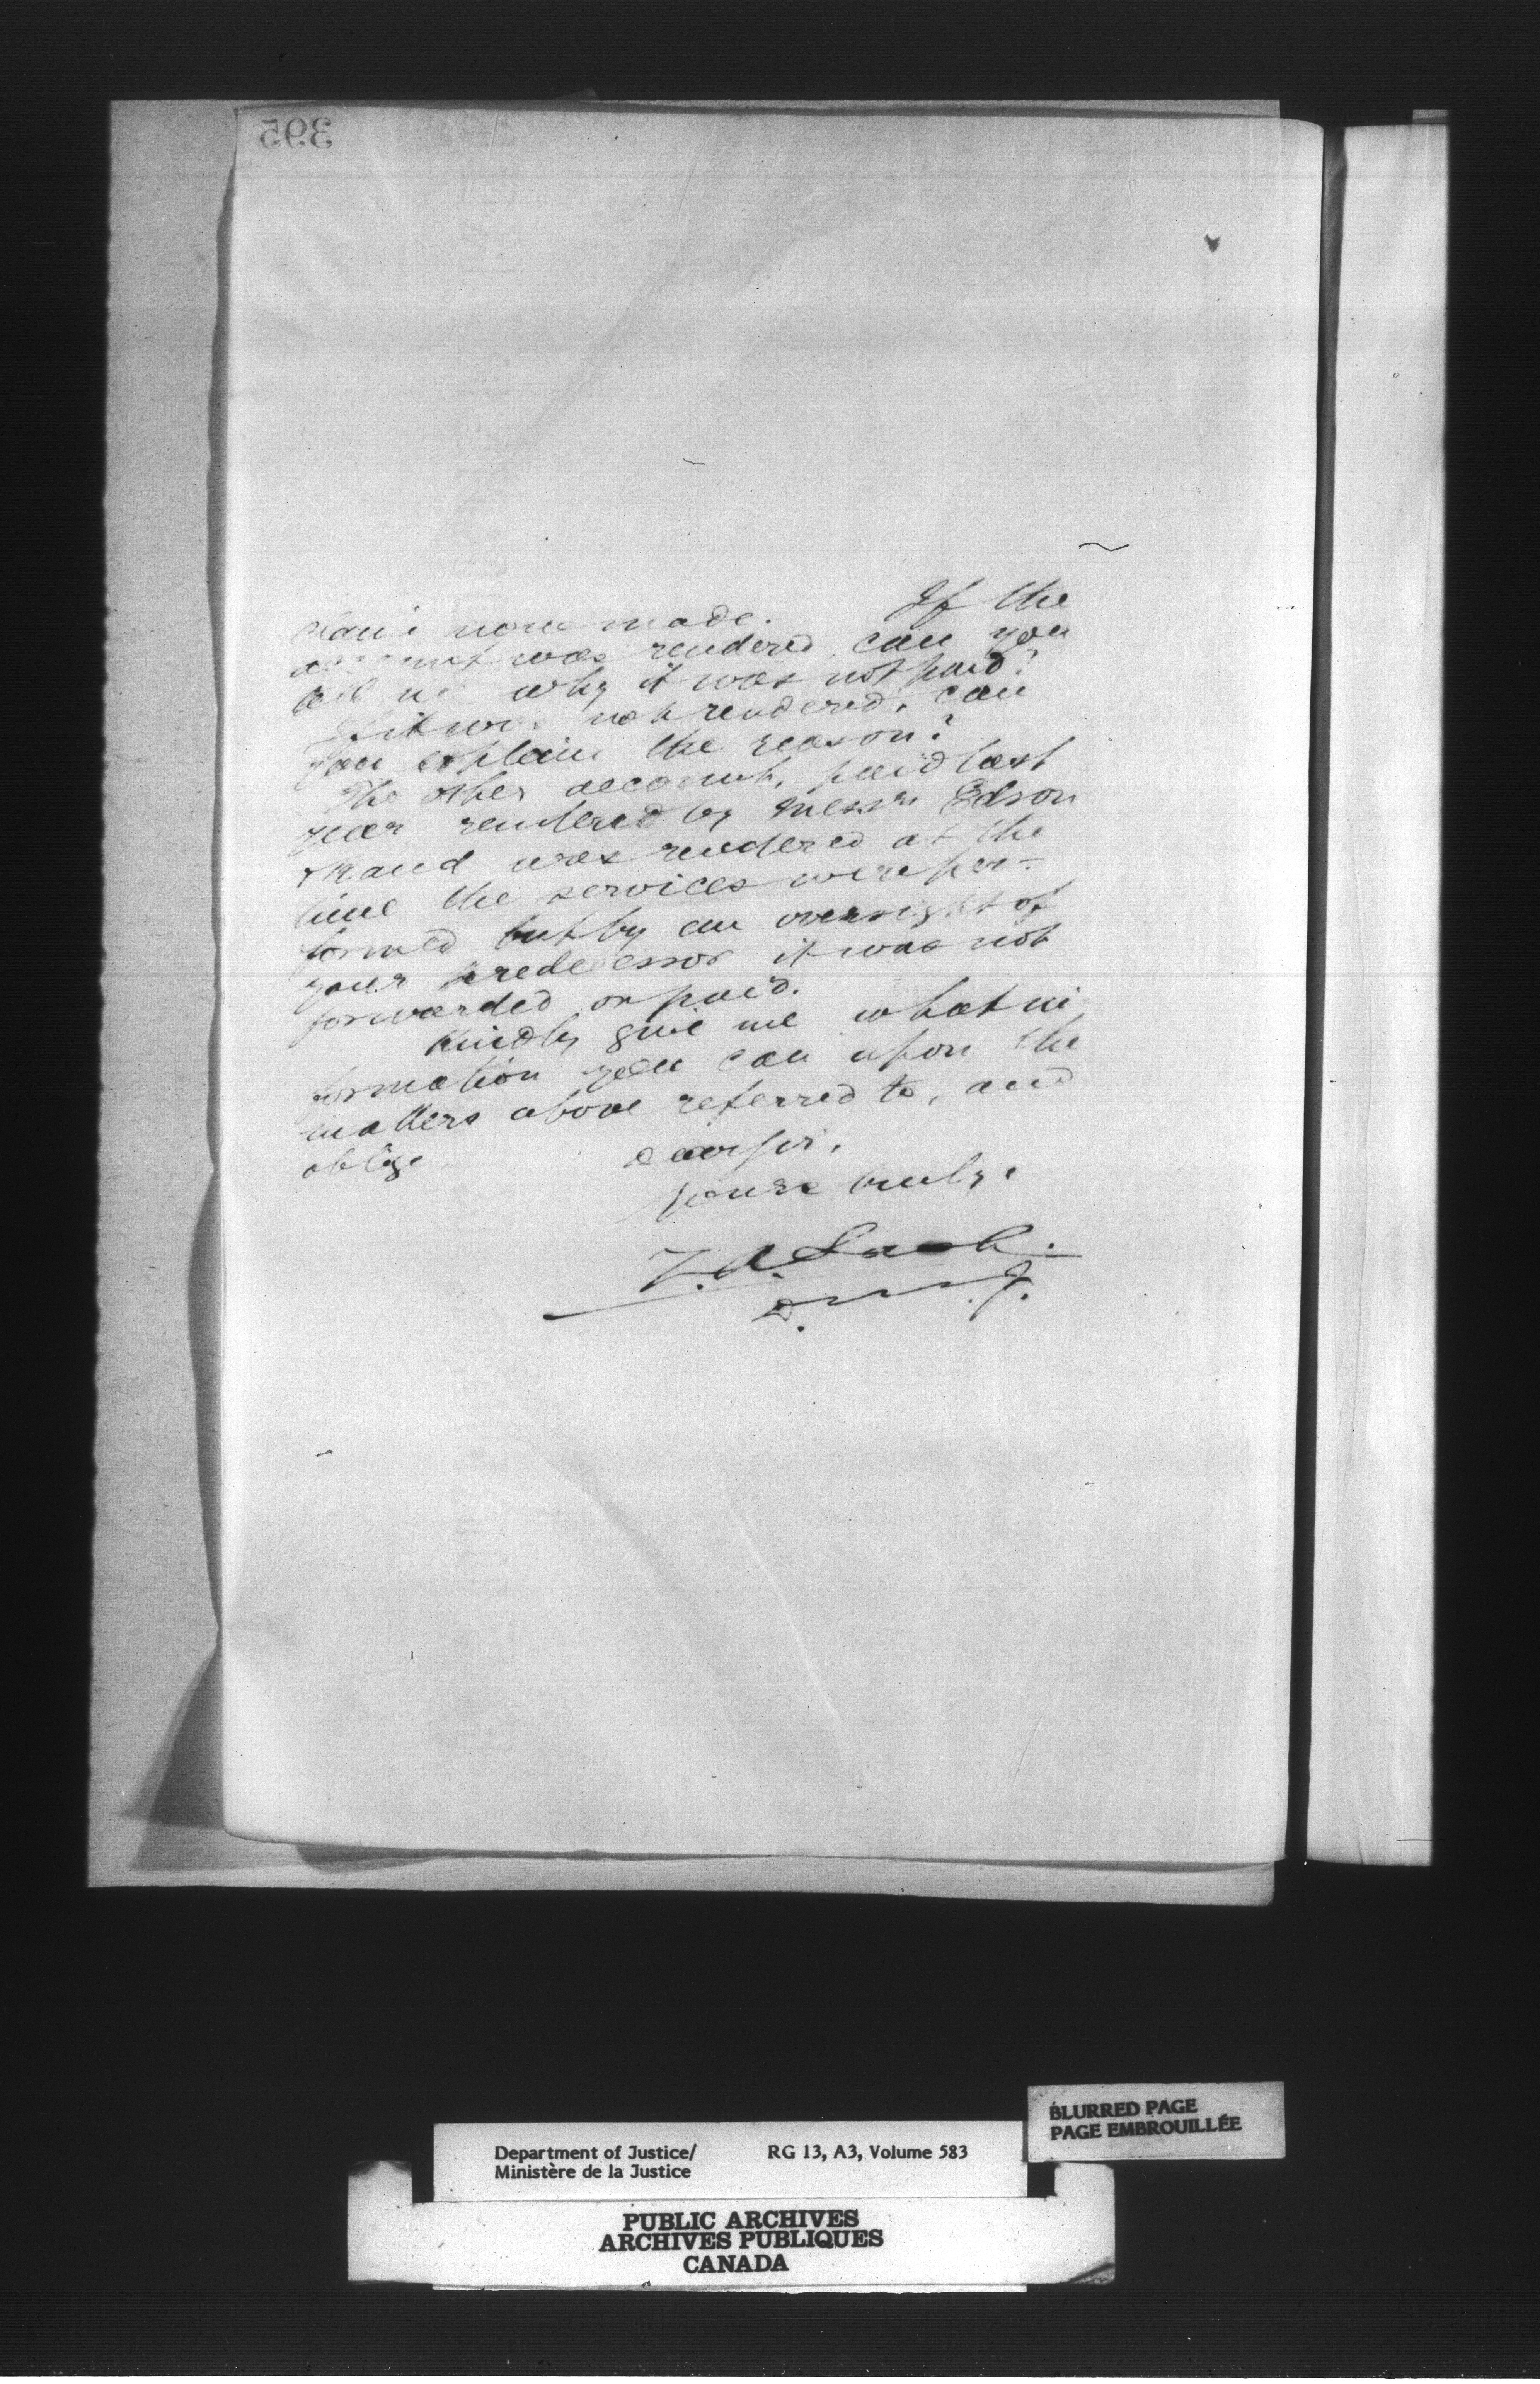 395
claim now made. If the
account was rendered, can you
tell me why it was not paid?
If it was not rendered, can
you explain the reason?
The other account, paid last
year rendered by Messrs Edson
& was rendered at the
time the services were per-
formed but by an oversight of
your predecessor it was not
forwarded or paid.
Kindly give me what in
formation you can upon the
matters above referred to, and
oblige
Dear sir,
yours truly,
Z. A. Lash.
D. M. J.
BLURRED PAGE
PAGE EMBROUILLÉE
Department of Justice/ RG 13, A3, Volume 583
Ministère de la Justice
PUBLIC ARCHIVES
ARCHIVES PUBLIQUES
CANADA